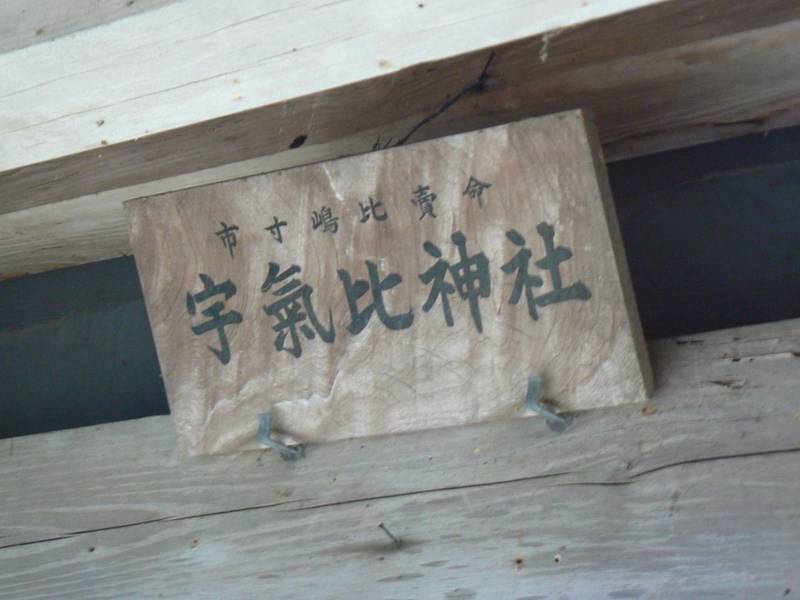 市寸嶋比賣命
宇氣比神社